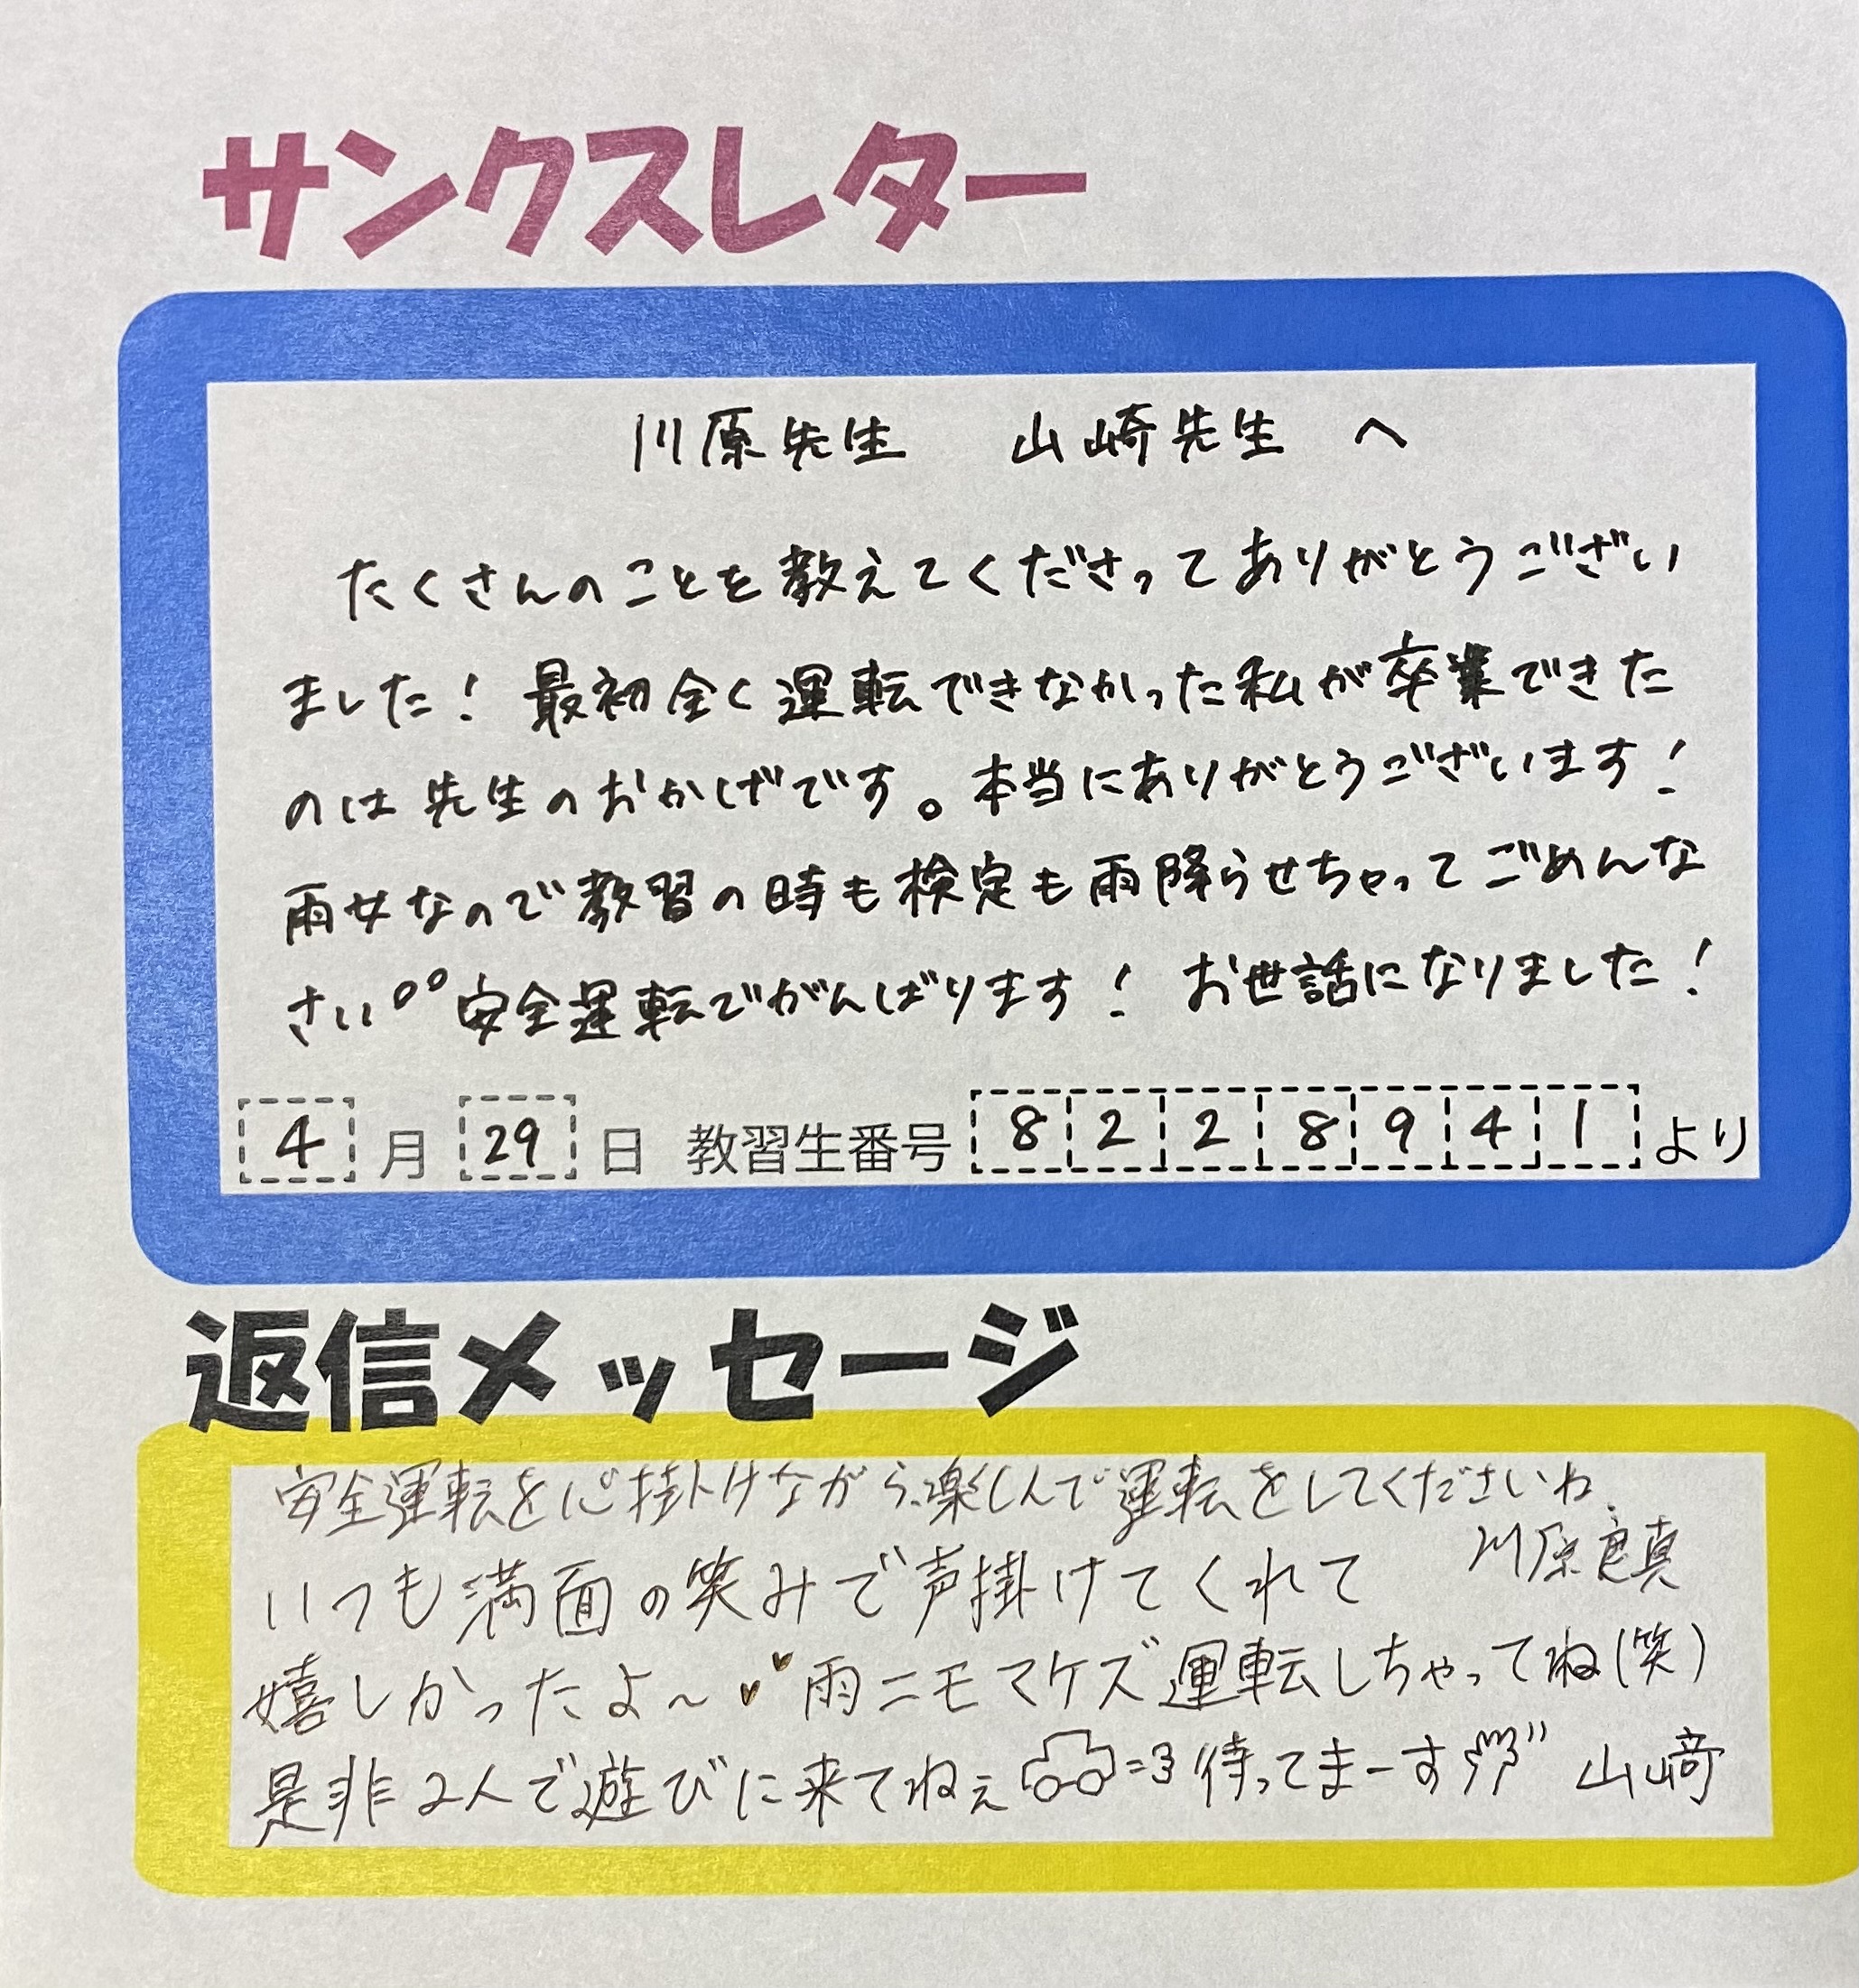 サンクスレター
川原先生　山崎先生　へ
たくさんのことを教えてくださってありがとうござい
ました！最初全く運転できなかった私が卒業できた
のは先生のおかげです。本当にありがとうございます！
雨女なので教習の時も検定も雨降らせちゃってごめんな
さい°°安全運転でがんばります！お世話になりました！
4月29日　教習生番号 82228941より
返信メッセージ
安全運転を心掛けながら、楽しんで運転をしてくださいね。
川原良真
いつも満面の笑みで声掛けてくれて
嬉しかったよ〜雨ニモマケズ運転しちゃってね(笑)
是非2人で遊びに来てねぇ=3待ってまーす　山﨑